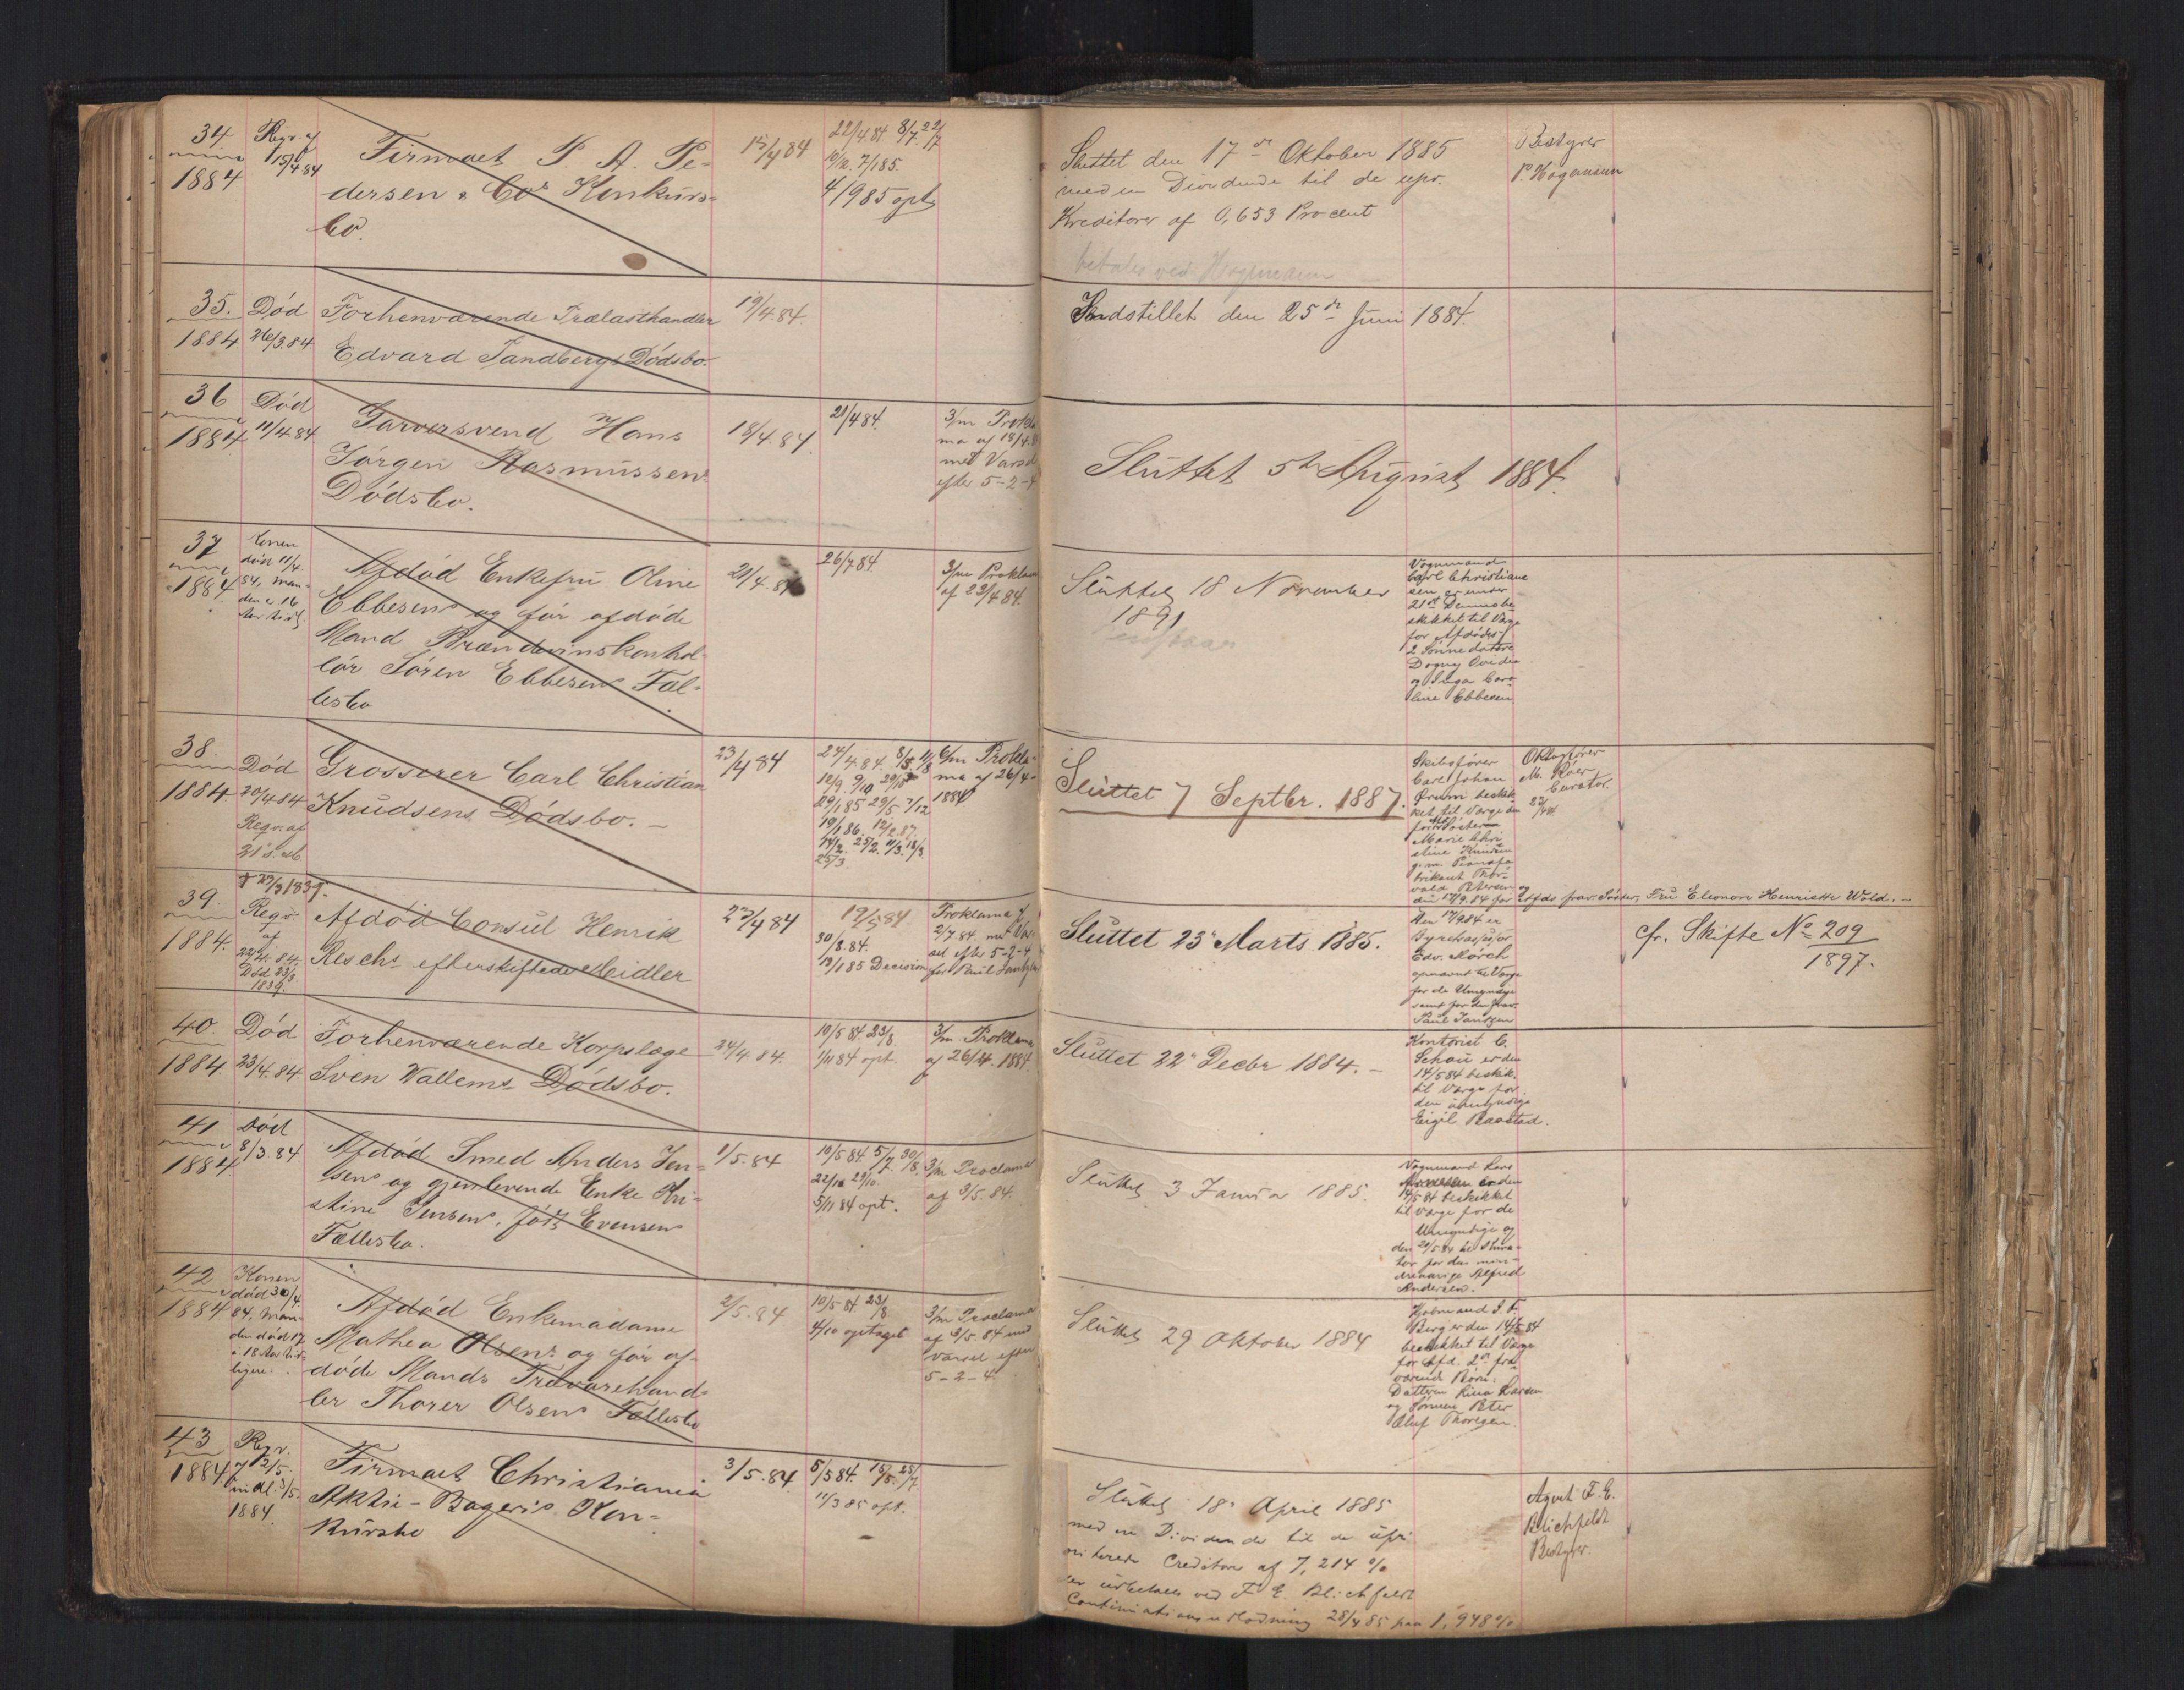 34
1884
Regr. af
15/4 84
Firmaet P. A. Pe-
dersen & Cos Konkurs-
bo.
15/4 84
22/4 84 8/7 22/7
4/9 85 opt.
Sluttet den 17de Oktober 1885
med en Dividende til de upr.
Kreditorer af 0,653 Procent
betales ved Hagemann
Bestyrer
35.
1884
Død
26/3.84
Forhenværende Trælasthandler
Edvard Sandbergs Dødsbo.
19/4.84.
den 25de Juni 1884.
36
1884
Død
11/4.84
Garversvend Hans
Jørgen Rasmussens
Dødsbo.
18/4.84
21/4 84.
3/m Prokla
ma af 18/4.8
met Varsel
efter 5-2-4
Sluttet 5te August 1884.
37
1884
Konen
død 11/4.
84, Man-
den c. 16
Aar tidl.
Afdød Enkefru Oline
Ebbesens og før afdøde
Mand Brændevinskontrol-
lør Søren Ebbesens Fæl-
lesbo
21/4.84
26/7 84.
3/m Proklam
af 22/4 84.
Sluttet 18 November
1891
Vognmand
Carl Christian-
sen er under
beskikket til Værge
for Afdødes
2 Sønnedøttre
Dagny Ovedia
og Inga Caro-
line Ebbesen
38.
1884.
Død
20/4 84
Reqv. af
21 s. M.
Grosserer Carl Christian
Knudsens Dødsbo. –
23/4 84
24/4 84. 8/5. 11/8
12/9. 9/10 29/10
29/1 85 29/5 7/12
19/1 86. 12/2 87.
14/2. 25/2. 11/3. 18/3
25/3.
6/m Prokla-
ma af 26/4-
1884
Sluttet 7 Septbr. 1887.
Skibsfører
Carl Johan
Ørum beskik-
ket til Værge den
for Afd. Søster
Marie Chri-
stine Knudsen
g. m. Pianofa-
brikant Thor-
vald Petersen og
den 17/9.84 for Afds frav. Søster, Fru Eleonore Henriette Wold. –
M. Roer
Curator.
39.
1884.
† 23/3 1839.
Reqv.
af
22/4. 84.
Død 23/3
1839.
Afdød Consul Henrik
Reschs efterskiftede Midler
22/4 84
12/5 84
30/8. 84.
13/1 85 Decision
Proklama af
2/7 84 met Var-
sel efter 5-2-4
for Paul Jantzen
Sluttet 23de Marts 1885.
Den 17/9 84 er
Edv. Mørch
opnævnt til Værge
for de Umyndige
samt for den frav.
Paul Jantzen
cfr. Skifte No 209
1897.
40.
1884
Død
23/4.84
Forhenværende Korpslæge
Sven Wallems Dødsbo.
24/4.84.
10/5 84. 23/8.
1/11 84 opt.
3/m Proklama
af 26/4. 1884.
Sluttet 22de Decbr 1884. –
Kontorist C.
Schou er den
14/5 84 beskik.
til Værge for
den umyndige
Eigil Raastad.
41
1884
Død
8/3.84
Afdød Smed Anders Jen-
sens og gjenlevende Enke Kri-
stine Jensens, født Evensen
Fællesbo.
1/5.84
10/5 84 5/7. 30/8.
22/10 29/10.
5/11 84 opt.
3/m Proclama
af 3/5.84.
Sluttet 3 Januar 1885.
Vognmand Lars
er den
14/5 84 beskikket
til Værge for de
Umyndige og
den 21/5 84 til Kura-
tor for den min-
dreaarige Alfred
Andersen.
42
1884
Konen
død 30/4
84, Man-
den død 17
à 18 Aar tid-
ligere.
Afdød Enkemadame
Mathea Olsens og før af-
døde Mands Trævarehand-
ler Thorer Olsens Fællesbo
2/5.84
10/5 84. 23/8
4/10 optaget
3/m Proclama
af 3/5.84 med
Varsel efter
5-2-4.
Sluttet 29 Oktober 1884
Berg er den 14/5 84
beskikket til Værge
for Afd. 2de fra-
værende Børn:
Datteren Rina Larsen
og Sønnen Peter
Oluf Thoresen.
43
1884
Reqv.
af 2/5.
indl. 3/5.
1884.
Firmaet Christiania
Aktie-Bageris Kon-
kursbo
3/5.84.
5/5 84. 15/5. 25/7.
11/3 85 opt.
Sluttet 18de April 1885
med en Dividende til de upri-
oriterede Creditorer af 7,214 %
der udbetales ved F. E. Blichfeldt
28/4 85 paa 1,948 %
Agent F. E.
Blichfeldt
Bestyrer.